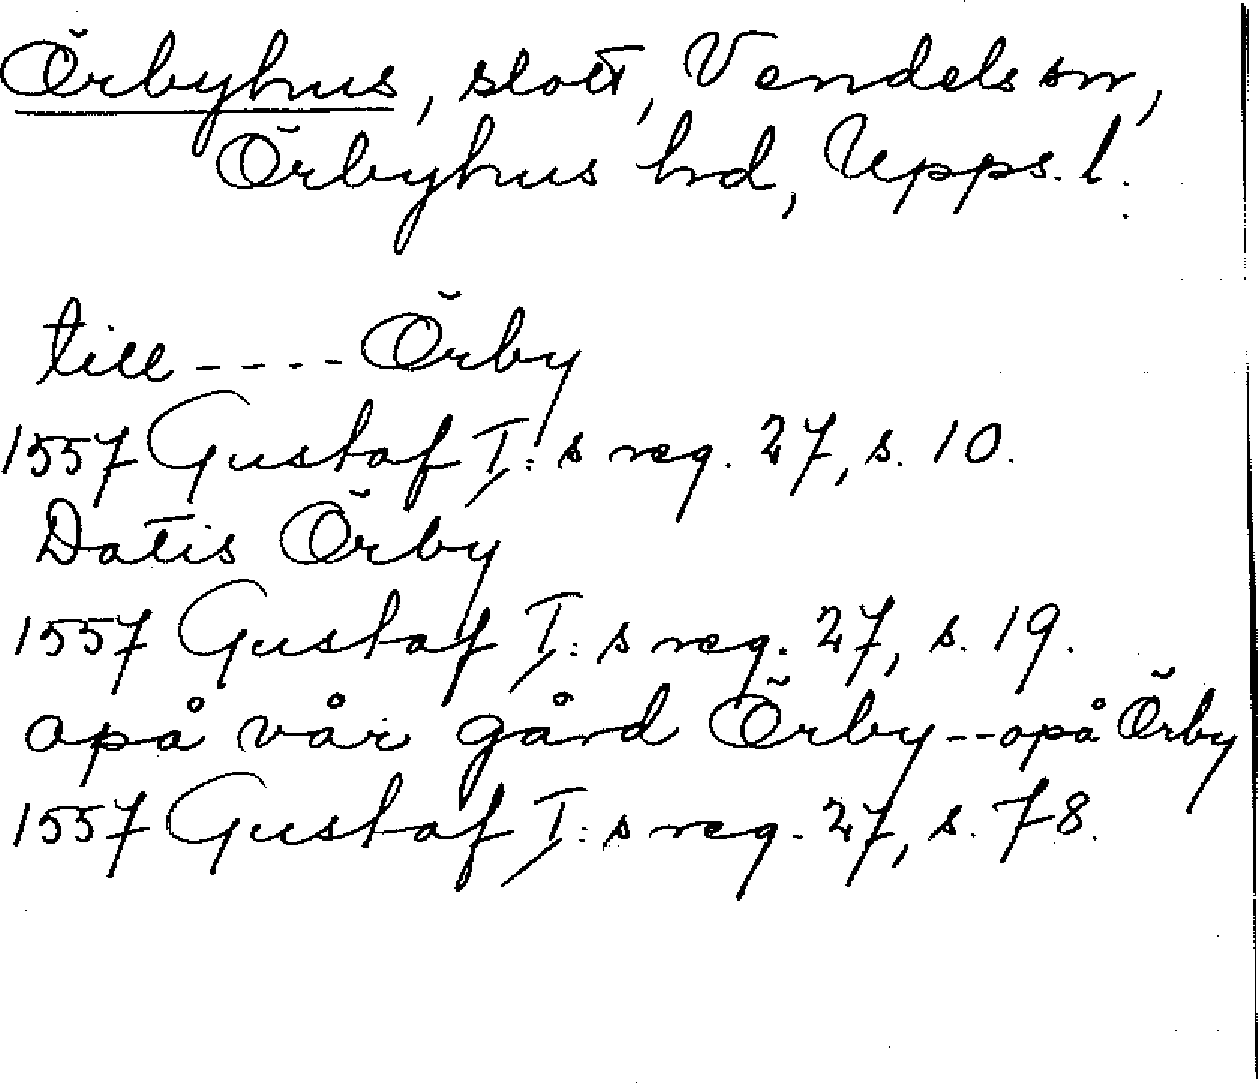 Örbyhus, slott, Vendels sn,
Örbyhus hd, Upps. l.
till - - - - Örby
1557 Gustaf I:s reg. 27, s. 10.
Datis Örby
1557 Gustaf I:s reg. 27, s. 19.
opå vår gård Örby -- opå Örby
1557 Gustaf I:s reg. 27, s. 78.